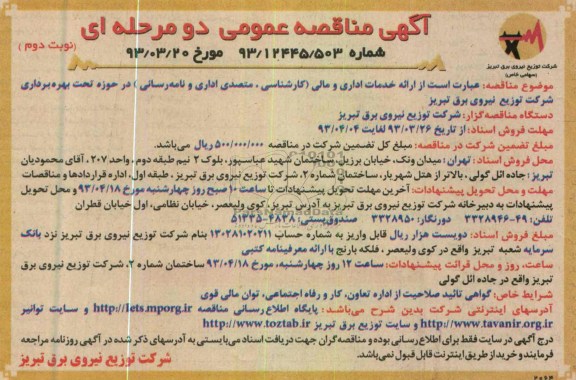 آگهی مناقصه عمومی دو مرحله ای
(نوبت دوم)
شماره ۹۳/۱۲۴۴۵/۵۰۳ مورخ ۹۳/۰۳/۲۰
شرکت توزیع نیروی برق تبریز
(سهامی خاص)
موضوع مناقصه: عبارت است از ارائه خدمات اداری و مالی (کارشناسی ، متصدی اداری و نامه‌رسانی) در حوزه تحت بهره‌برداری
شرکت توزیع نیروی برق تبریز
دستگاه مناقصه‌گزار: شرکت توزیع نیروی برق تبریز
مهلت فروش اسناد: از تاریخ ۹۳/۰۳/۲۶ لغایت ۹۳/۰۴/۰۴
مبلغ تضمین شرکت در مناقصه: مبلغ کل تضمین شرکت در مناقصه ۵۰۰/۰۰۰/۰۰۰ ریال می‌باشد.
محل فروش اسناد: تهران: میدان ونک، خیابان برزیل، ساختمان شهید عباسپور، بلوک ۲ نیم طبقه دوم، واحد ۲۰۷ ، آقای محمودیان
تبریز: جاده ائل گولی، بالاتر از هتل شهریار، ساختمان شماره ۲، شرکت توزیع نیروی برق تبریز، طبقه اول، اداره قراردادها و مناقصات
مهلت و محل تحویل پیشنهادات: آخرین مهلت تحویل پیشنهادات تا ساعت ۱۰ صبح روز چهارشنبه مورخ ۹۳/۰۴/۱۸ و محل تحویل
پیشنهادات به دبیرخانه شرکت توزیع نیروی برق تبریز به آدرس تبریز، کوی ولیعصر، خیابان نظامی، اول خیابان قطران
تلفن: ۴۹-۳۳۲۸۹۴۶ دورنگار: ۳۳۲۸۹۵۰ صندوق‌پستی: ۴۸۳۸-۵۱۳۳۵
مبلغ فروش اسناد: دویست هزار ریال قابل واریز به شماره حساب ۱۳۰۲۸۱۰۲۰۲۱۱ بنام شرکت توزیع نیروی برق تبریز نزد بانک
سرمایه شعبه تبریز واقع در کوی ولیعصر ، فلکه بارنج با ارائه معرفینامه کتبی
ساعت، روز و محل قرائت پیشنهادات: ساعت ۱۲ روز چهارشنبه، مورخ ۹۳/۰۴/۱۸ ساختمان شماره ۲، شرکت توزیع نیروی برق
تبریز واقع در جاده ائل گولی
شرایط خاص: گواهی تائید صلاحیت از اداره تعاون، کار و رفاه اجتماعی، توان مالی قوی
آدرسهای اینترنتی شرکت بدین شرح می‌باشد: پایگاه اطلاع رسانی مناقصه http://iets.mporg.ir و سایت توانیر
http://www.tavanir.org.ir و سایت توزیع برق تبریز http://www.toztab.ir
درج آگهی در سایت فقط برای اطلاع رسانی بوده و مناقصه گران جهت دریافت اسناد می‌بایستی به آدرسهای ذکر شده در آگهی روزنامه مراجعه
فرمایند و خرید از طریق اینترنت قابل قبول نمی‌باشد.
شرکت توزیع نیروی برق تبریز